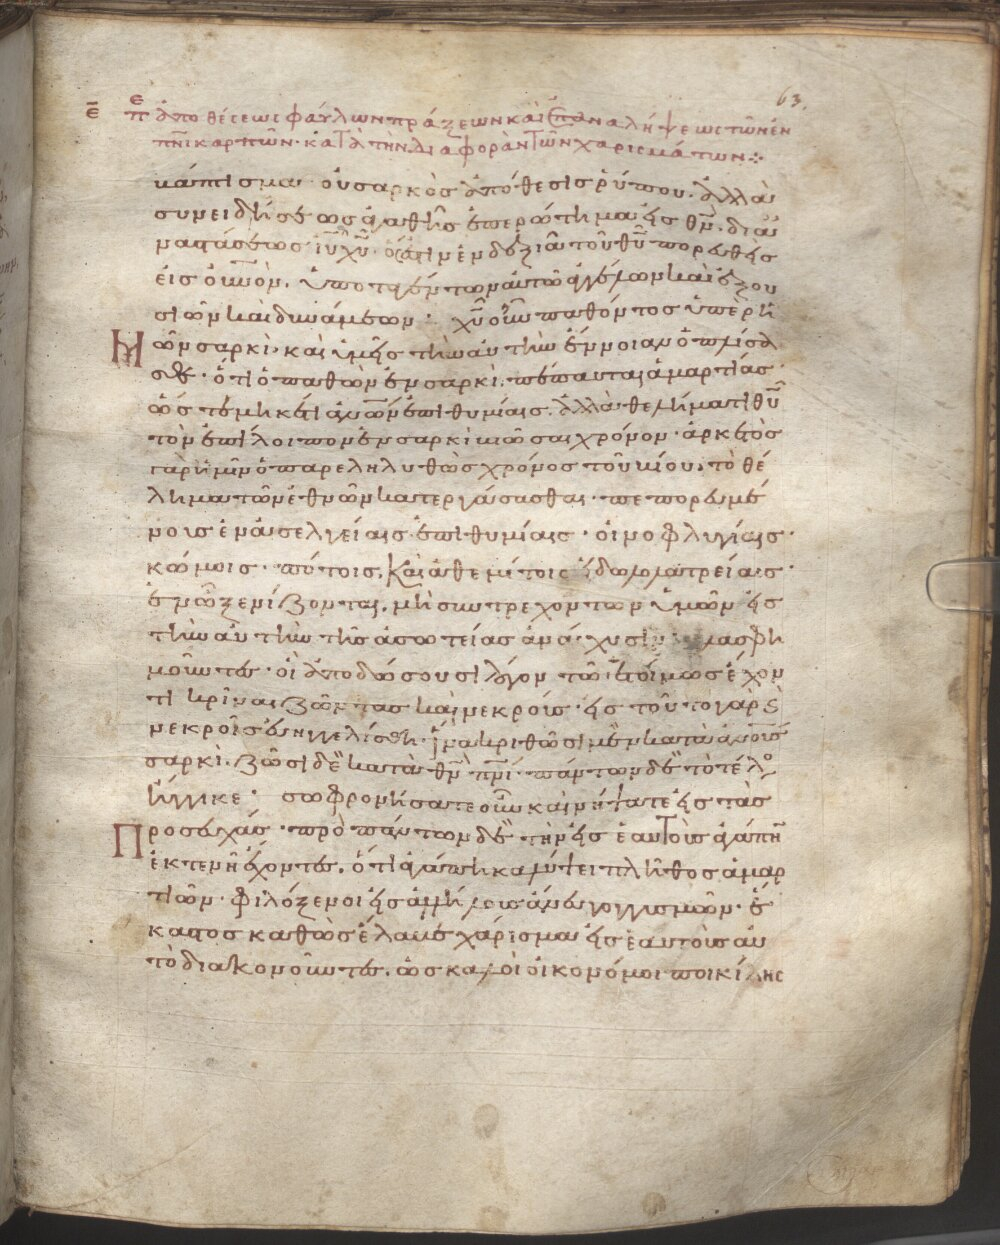 63.
ε̄ πε ἀποθέσεως φαύλων πράξεων καὶ ἐπαναλήψεως τῶν ἐν
πν̅ι καρπῶν· κατὰ τὴν διαφορὰν τῶν χαρισμάτων⁘
βάπτισμα· οὐ σαρκὸς ἀπόθεσις ῥύπου. ἀλλὰ
συνειδήσεως ἀγαθῆς ἐπερώτημα εἰς θν̅· δι' ἀ
ναστάσεως ιυ̅ χυ̅· ὅς ἐστιν ἐν δεξιᾶ τοῦ θυ̅ πορευθεὶς
εἰς οὐνον. ὑποταγέντων αὐτῶ ἀγγέλων καὶ ἐξου
σιῶν καὶ δυνάμεων· χυ̅ οὖν παθόντος ὑπὲρ ἡ
μῶν σαρκὶ· καὶ ὑμεῖς τὴν αὐτὴν ἔννοιαν ὁπλίσα
σθε· ὅτι ὁ παθὼν ἐν σαρκὶ. πέπαυται ἁμαρτίας·
ὡς τὲ μηκέτι ἀνων ἐπιθυμίαις. ἀλλὰ θελήματι θυ̅
τὸν ἐπίλοιπον ἐν σαρκὶ βιῶσαι χρόνον· ἀρκετὸς
γὰρ ἡμῖν ὁ παρεληλυθὼς χρόνος τοῦ βίου. τὸ θέ
λημα τῶν ἐθνῶν κατεργάσασθαι· πεπορευμέ
νους ἐν ἀσελγείαις ἐπιθυμίαις· οἰνοφλυγίαις·
κώμοις· πότοις. καὶ ἀθεμίτοις εἰδωλολατρείαις·
ἐν ὧ ξενίζονται. μὴ συντρεχόντων ὑμῶν εἰς
τὴν αὐτὴν τῆς ἀσωτείας ἀνάχυσιν βλασφη
μοῦντες· οἳ ἀποδώσουσι λόγον τῶ ἑτοίμως ἔχον
τι κρῖναι ζῶντας καὶ νεκρούς· εἰς τοῦτο γὰρ καὶ
νεκροῖς εὐηγγελίσθη· ἵνα κριθῶσι μὲν κατὰ ἀνους
σαρκὶ. ζῶσι δὲ κατὰ θν̅ πν̅ι· πάντων δὲ τὸ τέλο
ἤγγικε· σωφρονήσατε οὖν καὶ νήψατε εἰς τὰς
προσευχάς· πρὸ πάντων δὲ· τὴν εἰς ἑαυτοὺς ἀγάπην
ἐκτενῆ ἔχοντες. ὅτι ἀγάπη καλύψει πλῆθος ἁμαρ
τιῶν· φιλόξενοι εἰς ἀλλήλους ἄνευ γογγυσμῶν· ἕ
καστος καθὼς ἔλαβε χάρισμα εἰς ἑαυτοὺς αὐ
τὸ διακονοῦντες. ὡς καλοὶ οἰκονόμοι ποικίλης